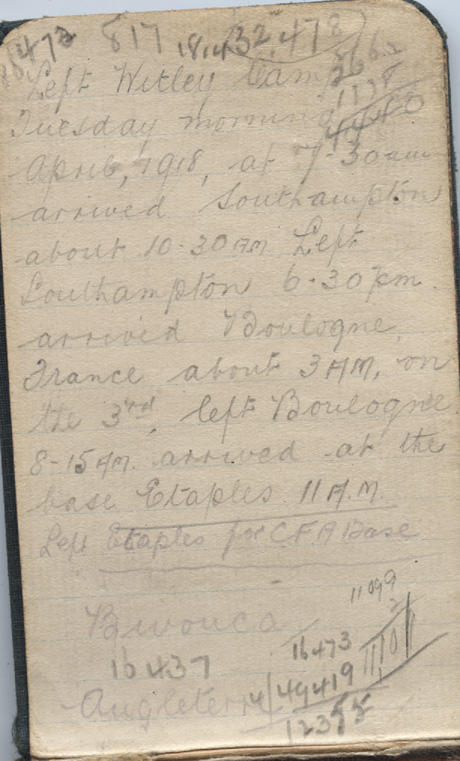 16473 817 18,14 32,478
Left Witley Cam
Tuesday morning
April, 1918, at 7-30am
arrived Southampton
about 10-30 AM Left
Southampton 6-30 pm.
arrived Boulogne,
France about 3 AM, on
the 3rd, left Boulogne
8-15 AM. arrived at the
base Etaples 11 A.M.
Left Etaples for C.F.A Base
11099
Bivouca
16437 16473
Angleterr 49419 11101
12355